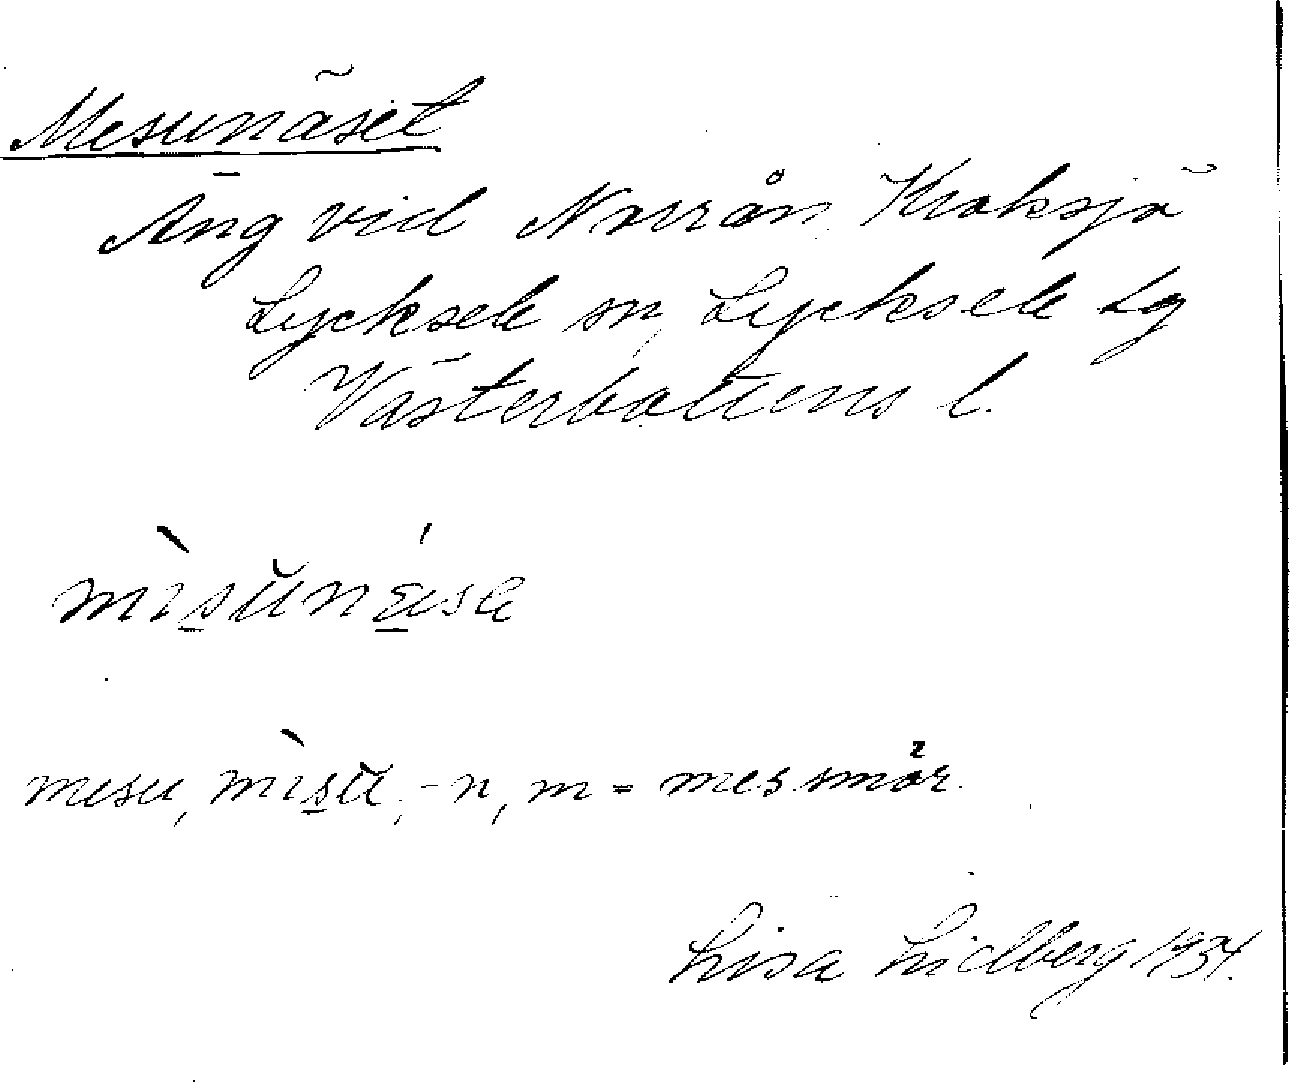 Mesunäset
Äng vid Norrån, Kroksjö
Lycksele sn, Lycksele lg
Västerbottens l.
mesu, -n, m = messmör.
Lisa Lidberg 1934.